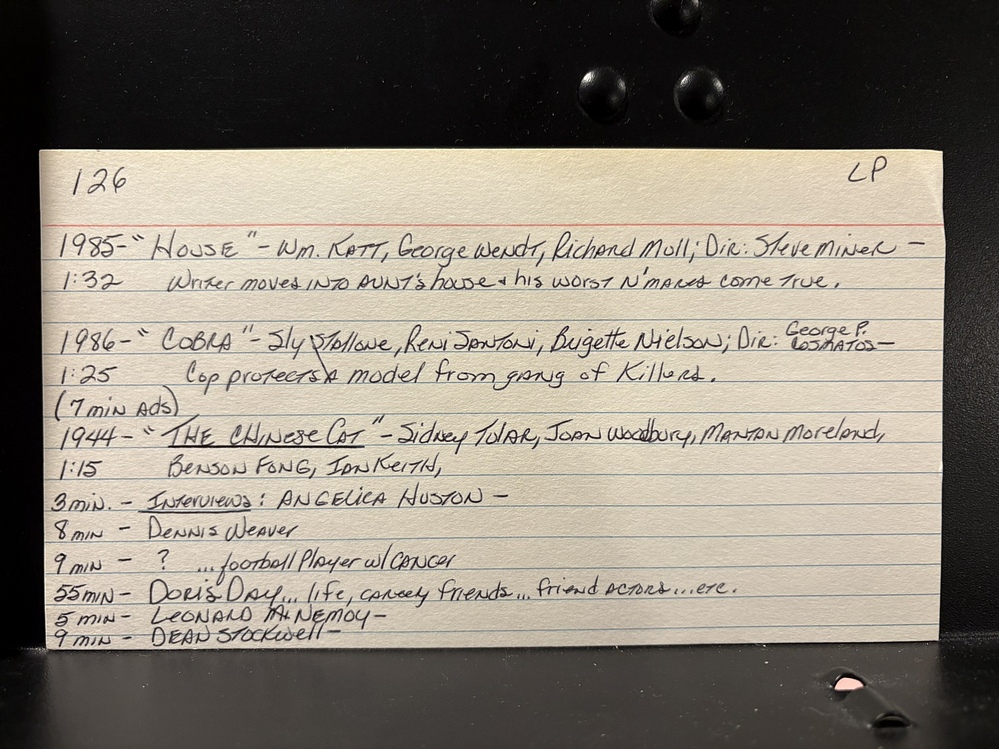 126 LP
1985-"HOUSE"- Wm. KATT, George Wendt, Richard Moll; Dir: Steve Miner -
1:32 Writer moves into Aunt's house & his worst N'mares come true.
1986-"COBRA"- Sly Stallone, Reni Santoni, Brigette Nielson; Dir: George P. Cosmatos-
1:25 Cop protects A model from gang of Killers.
(7 min Ads)
1944-"THE CHINESE CAT"- Sidney Tolar, Joan Woodbury, Mantan Moreland,
1:15 Benson Fong, Ian Keith,
3 min. - Interviews: Angelica Huston -
8 min - Dennis Weaver
9 min - ? ...football Player w/ Cancer
55 min - Doris Day... life, career, friends... friend actors...etc.
5 min - Leonard Nemoy-
9 min - Dean Stockwell-